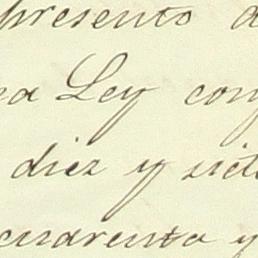 presento
Ley con
diez y siete
cuarenta y